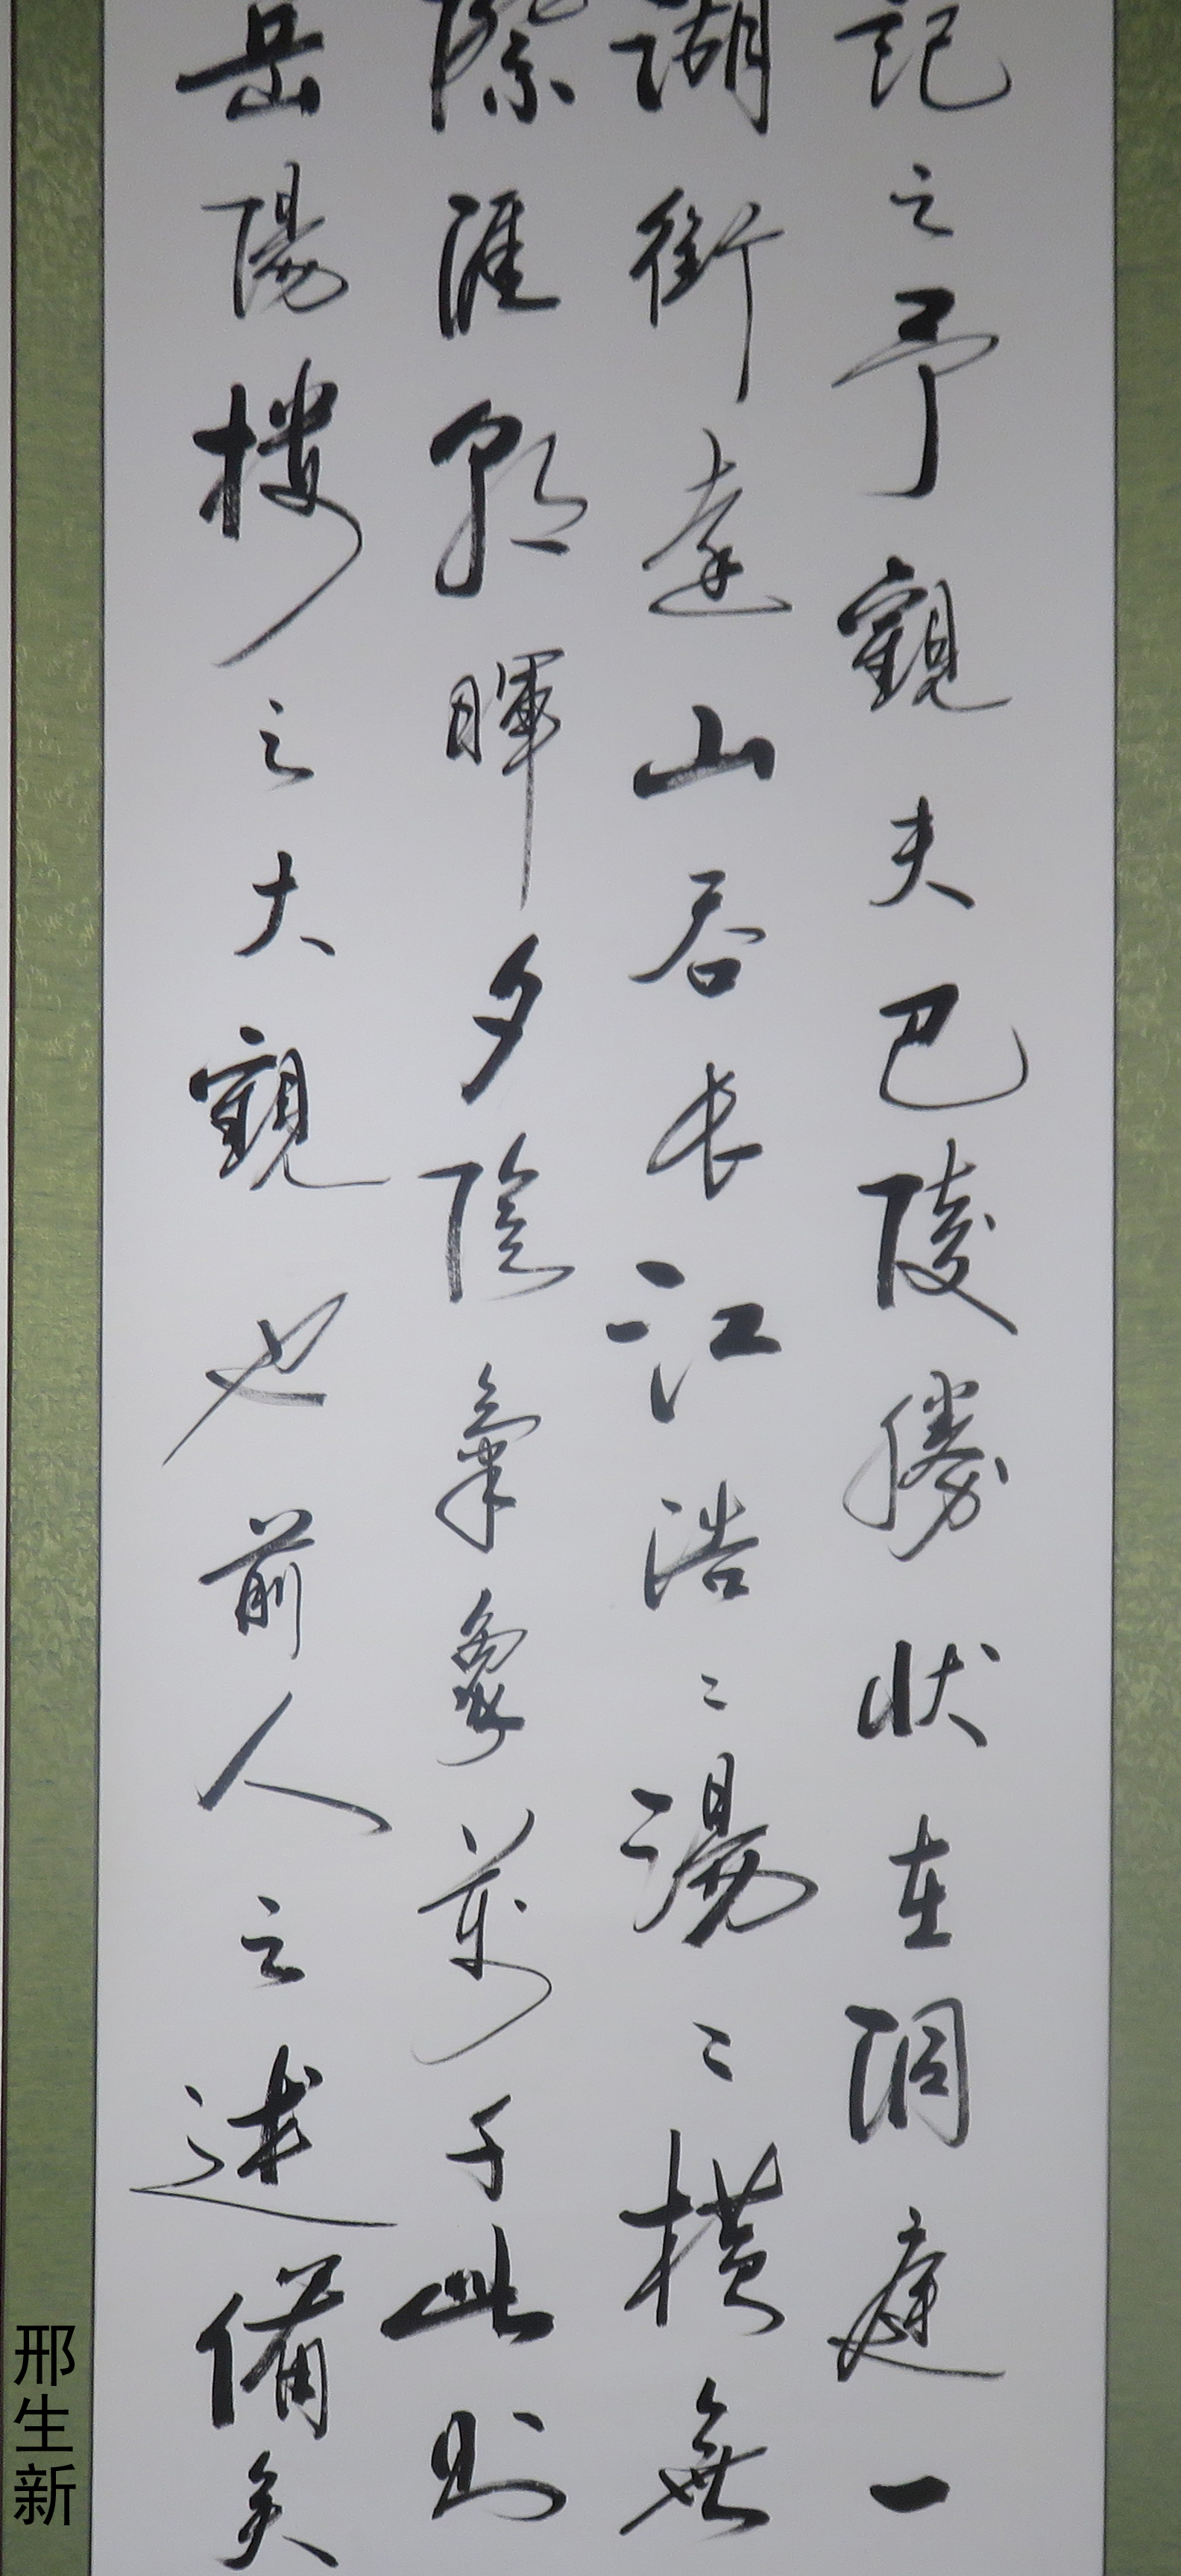 記之予觀夫巴陵勝狀在洞庭一
湖銜遠山吞長江浩〻湯〻橫無
際涯朝暉夕陰氣象萬千此則
岳陽樓之大觀也前人之述備矣
邢生新